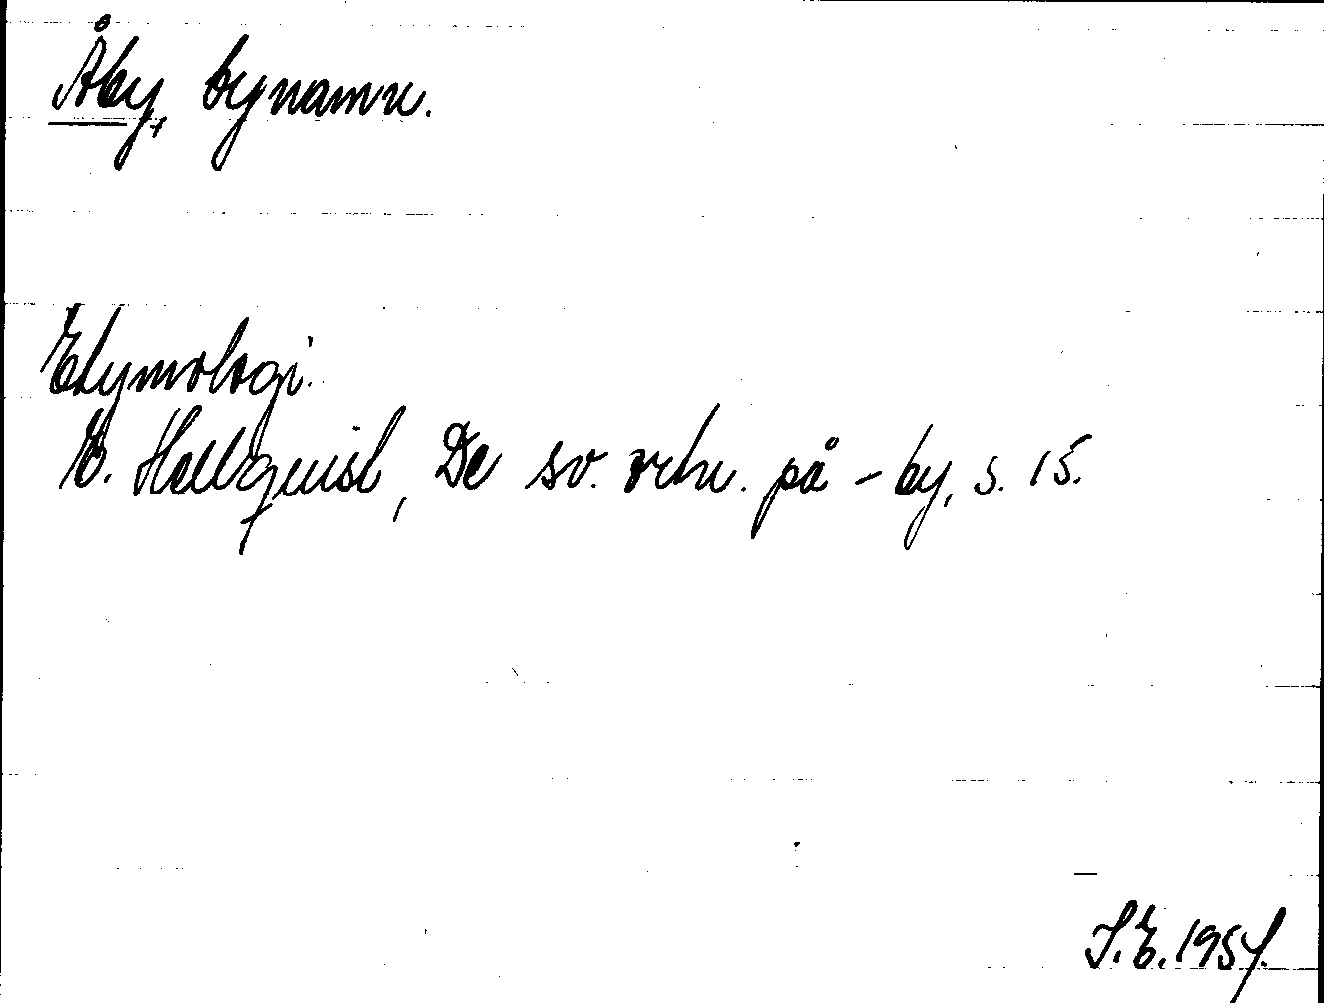 Åby, bynamn.
Etymologi:
E. Hellquist, De sv. ortn. på -by, s. 15.
S.E. 1954.